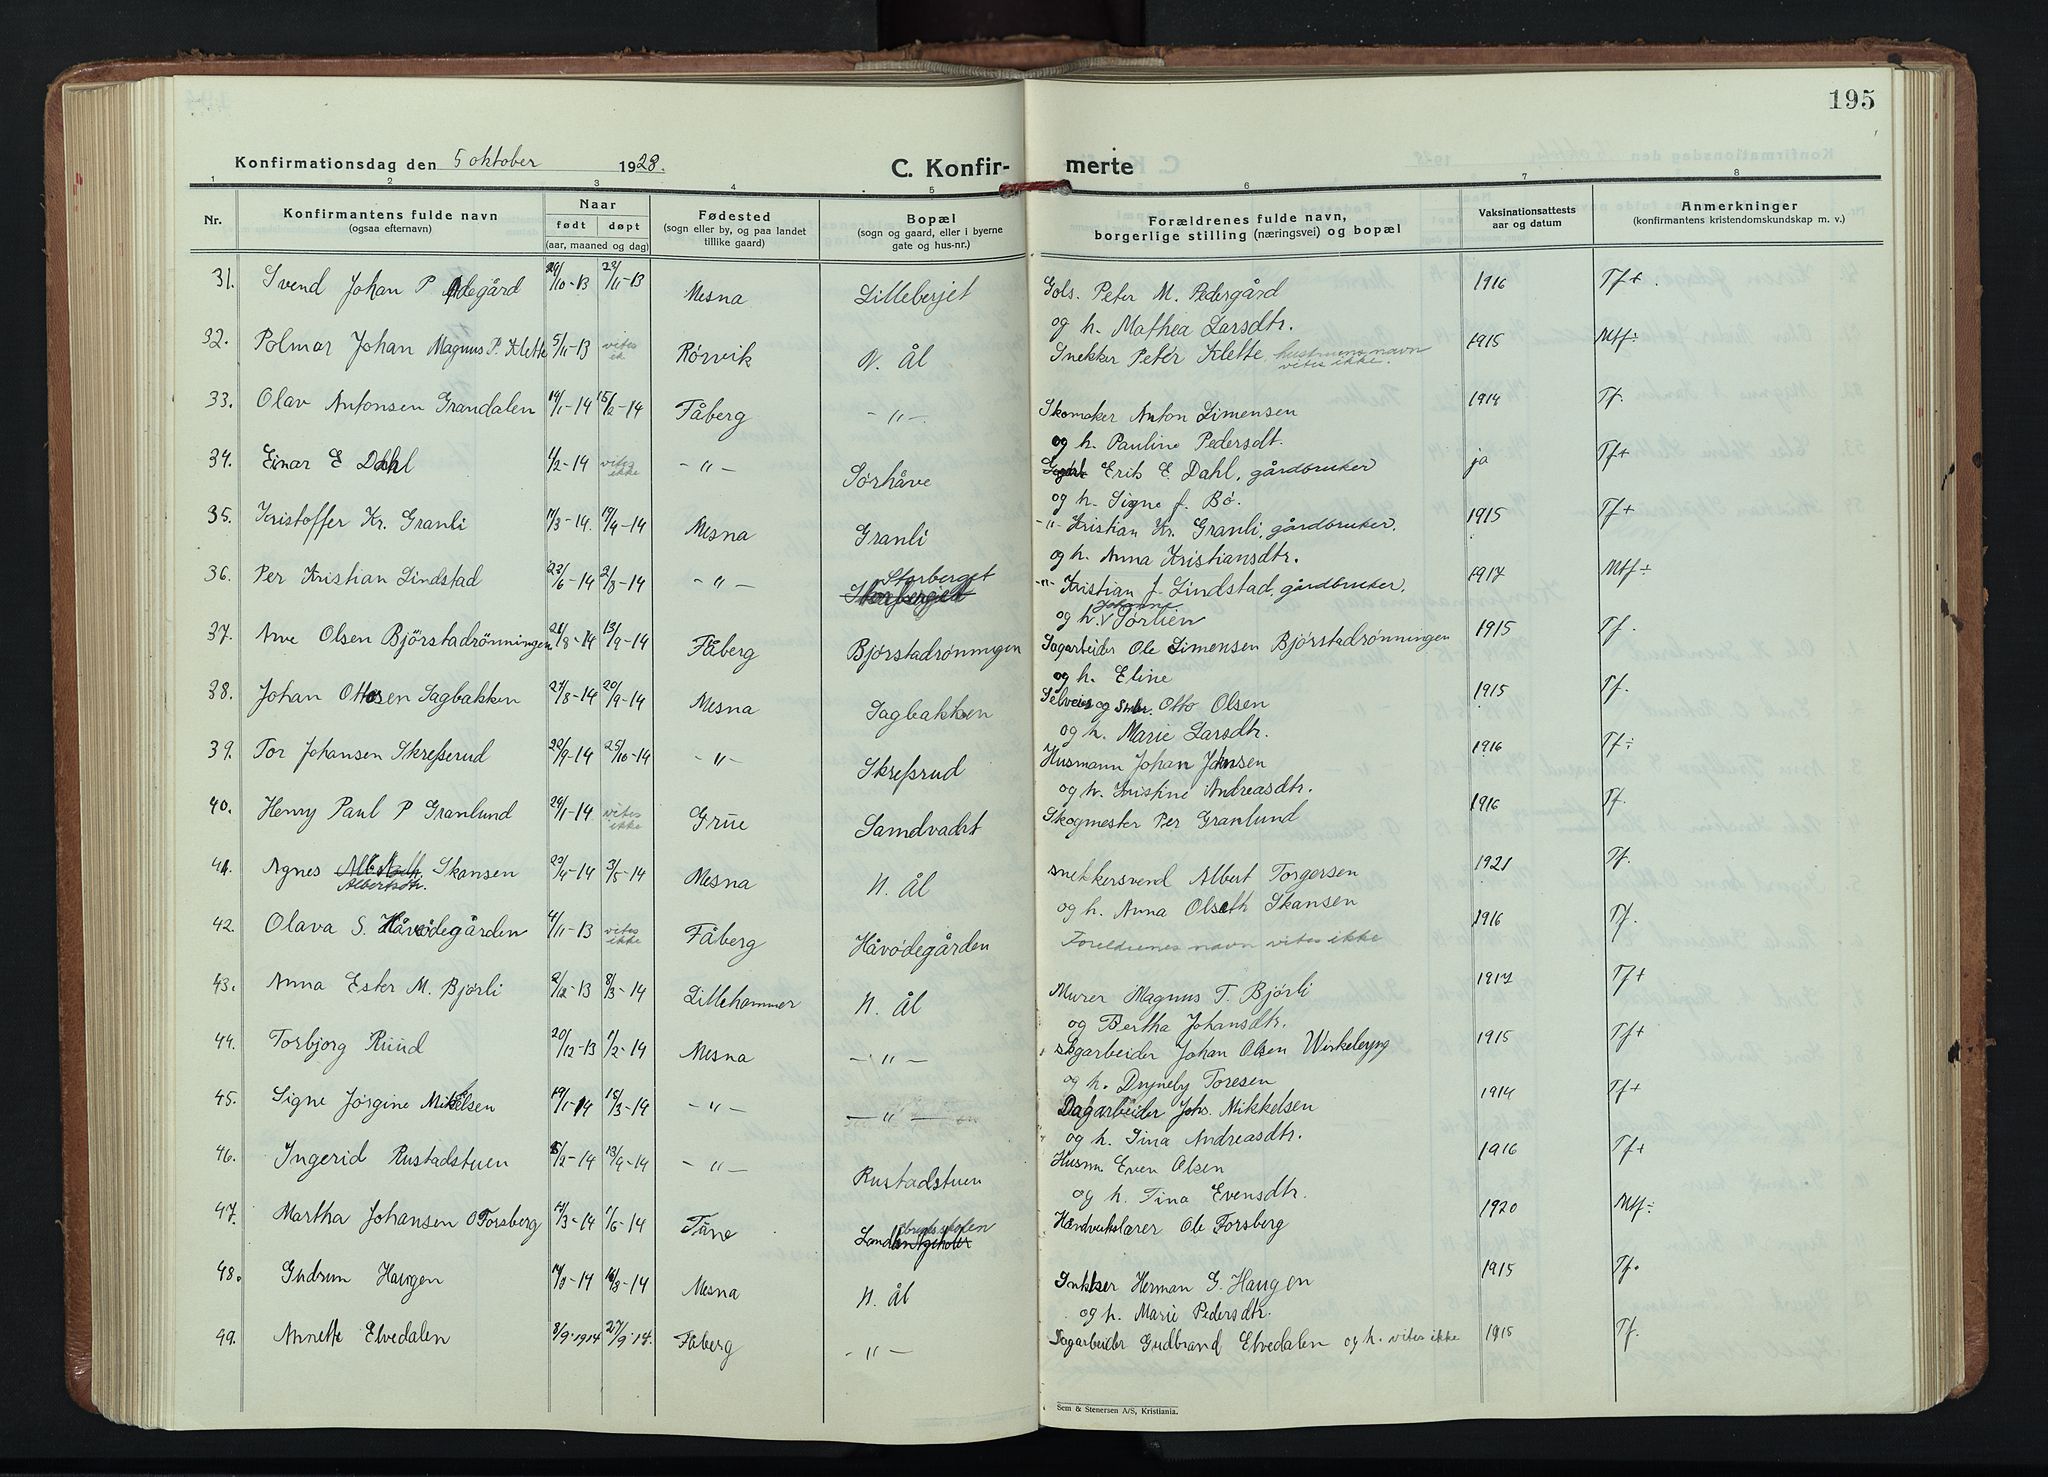 195
Konfirmationsdag den 5 oktober 1928. C. Konfir- merte
1 2 3 4 5 6 7 8
Nr. Konfirmantens fulde navn (ogsaa efternavn) Naar født døpt (aar, maaned og dag) Fødested (sogn eller by, og paa landet tillike gaard) Bopæl (sogn og gaard, eller i byerne gate og hus-nr.) Forældrenes fulde navn, borgerlige stilling (næringsvei) og bopæl Vaksinationsattests aar og datum Anmerkninger (konfirmantens kristendomskundskap m. v.)
31. Svend Johan P 29/10-13 23/11-13 Mesna Lilleberjet Gbls. Peter M. Pedergård 1916 Tf+.
og h. Mathea Larsdtr.
32. Polmar Johan Magnus P. Klette 5/11-13 vites ik Rørvik N. Ål Snekker Peter Klette hustruens navn vites ikke. 1915 Mtf÷
33. Olav Antonsen Grandalen 19/1-14 15/2-14 Fåberg -"- Skomaker Anton Simensen 1914 Tf.
og h. Pauline Pedersdt.
34. Einar E Dahl 1/2-14 vites ikke -"- Sørhåve Erik E. Dahl, gårdbruker ja Tf+
og h. Signe J. Bø.
35. Kristoffer Kr. Granli 11/3-14. 19/4-14 Mesna Granli -"- Kristian Kr. Granli, gårdbruker. 1915 Tf+
og h. Anna Kristiansdtr.
36. Per Kristian Lindstad 23/6-14 2/8-14 -"- Storberget -"- Kristian J. Lindstad, gårdbruker. 1917 Mtf÷
og h. Johanne Tørlien
37. Arve Olsen Bjørstadrønningen 21/8-14 13/9-14 Fåberg Bjørstadrønningen Sagarbeider Ole Simensen Bjørstadrønningen 1915 Tf.
og h. Eline
38. Johan Ottosen Sagbakken 27/8-14 20/9-14 Mesna Sagbakken Selveier og Otto Olsen 1915 Tf.
og h. Marie Larsdtr.
39. Tor Johansen Skrefserud 20/9-14 25/10-14 -"- Skrefsrud Husmann Johan Jansen 1916 Tf÷
og h. Kristine Andreasdtr.
40. Henry Paul P Granlund 29/1-14 vites ikke Grue Samdvadet Skogmester Per Granlund 1916 Tf.
41. Agnes Albertsdtr. Skansen 22/4-14 3/5-14 Mesna N. Ål snekkersvend Albert Torgersen 1921 Tf.
og h. Anna Olseth Skansen
42. Olava S. Håvødegården 4/11-13 vites ikke Fåberg Håvødegården Foreldrenes navn vites ikke 1916 Tf.
43. Anna Ester M. Bjørli 2/12-13 8/3-14 Lillehammer N. Ål Murer Magnus T. Bjørli 1917 Tf+
og Bertha Johansdtr.
44. Torbjørg Ruud 20/12-13 1/2-14 Mesna -"- Johan Olsen 1915 Tf+
og h. Toresen
45. Signe Jørgine Mikkelsen 19/1-14 15/3-14 -"- -"- Dagarbeider Johs. Mikkelsen 1914 Tf+
og h. Tina Andreasdtr.
46. Ingerid Rustadstuen 8/2-14 13/4-14 -"- Rustadstuen Husm Even Olsen 1916 Tf+
og h. Tina Evensdtr.
47. Martha Johansen O Forsberg 12/3-14 1/6-14 Håndverkslærer Ole Forsberg 1920 Mtf÷
48. Gudrun Haugen 14/3-14 16/8-14 Mesna N. Ål Herman G. Haugen 1915 Tf.
og h. Marie Pedersdtr.
49. Annette Elvedalen 8/9.1914 27/9.14. Fåberg -"- Dagarbeider Gudbrand Elvedalen og h. vites ikke 1915 Tf.
Sem & Stenersen A/S, Kristiania.